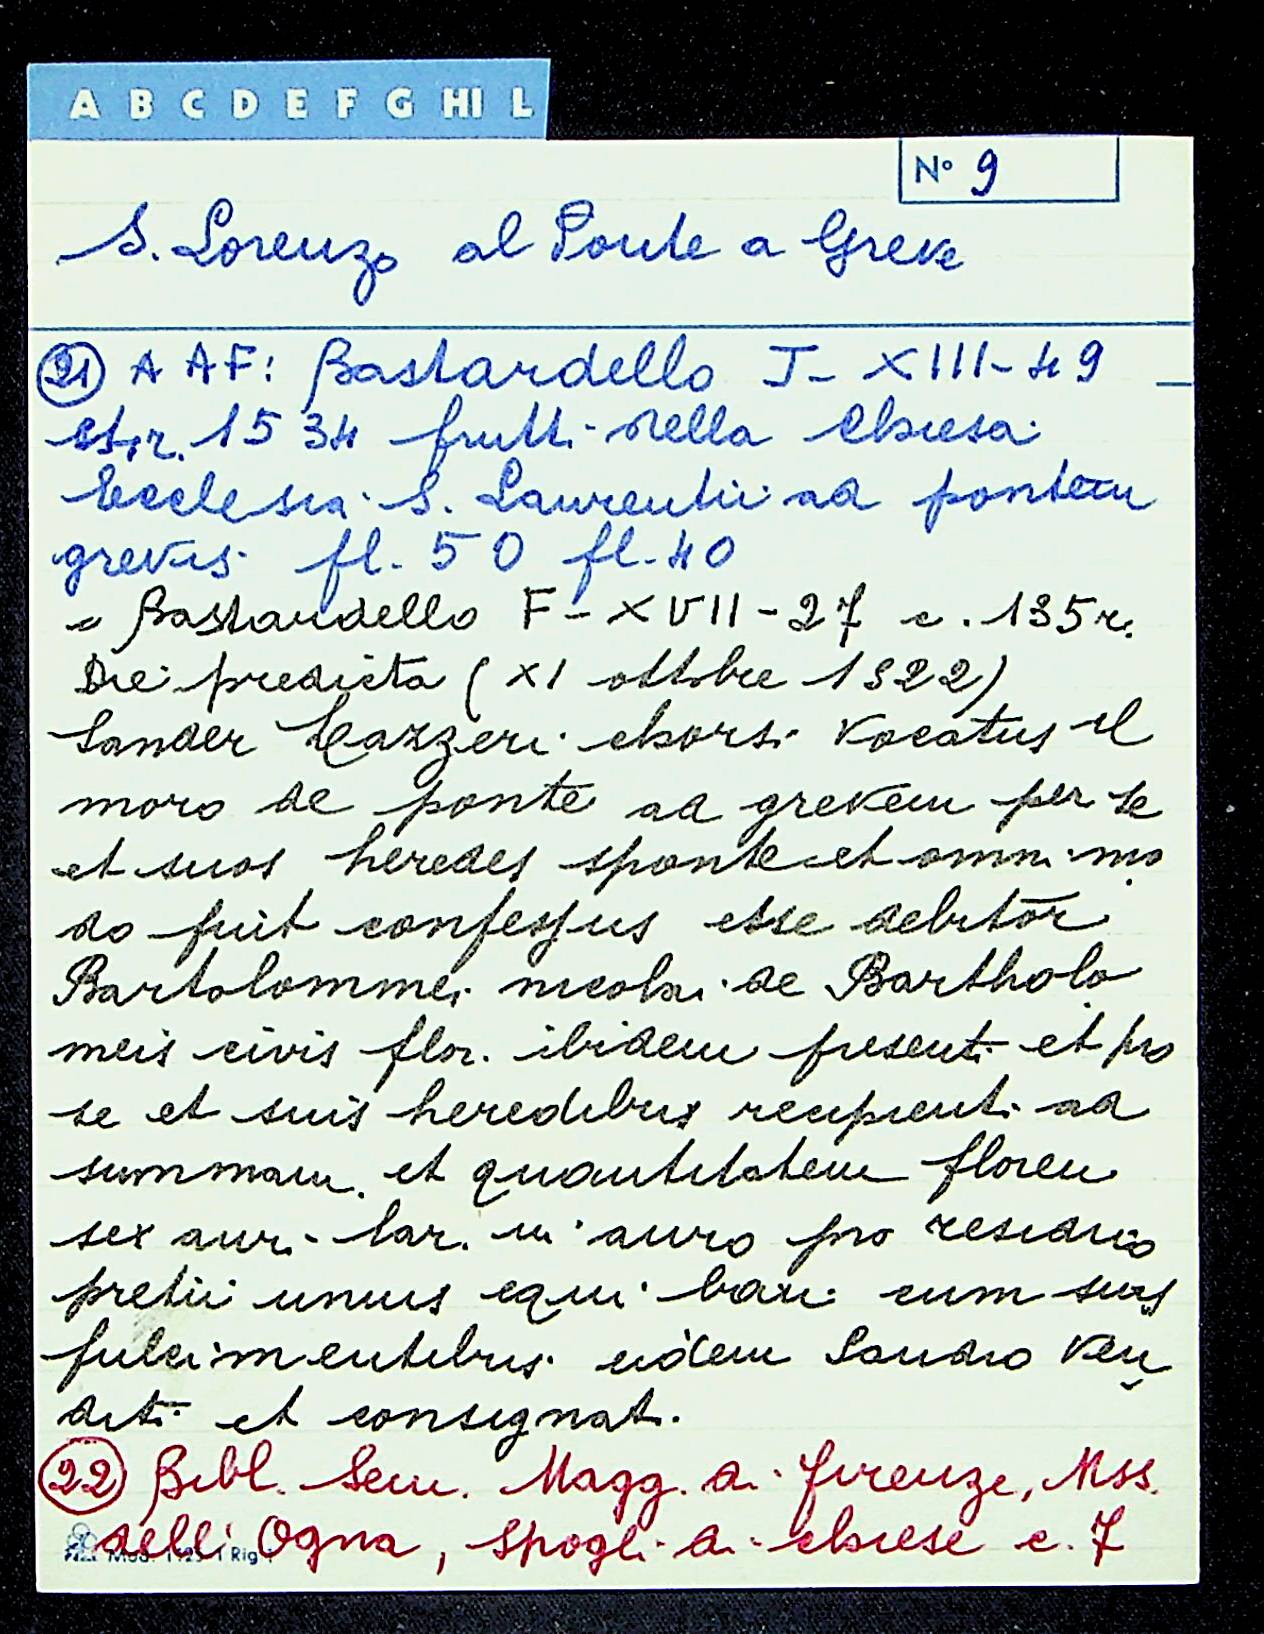 A B C D E F G HI L
N° 9
S. Lorenzo al Ponte a Greve
21 A A F: Bastardello J - XIII - 49 -
1534 frutti della Chiesa
Ecclesia S. Laurentii ad pontem
grevis fl. 50 fl. 40
Bastardello F - XVII - 27 c. 135r.
Die predicta (XI ottobre 1522)
Sander chorsi vocatus il
moro de ponte ad grevem per se
et suos heredes sponte et omni mo
do fuit confessus esse debitor
Bartolommei nicolai de Bartholo
meis civis flor. ibidem presenti et pro
se et suis heredibus recipienti ad
summam et quantitatem floren
sex aur. lar. in auro pro residuo
pretii unius equi bari cum suis
fulcimentibus eidem Sandro ven
diti et consignati.
22 Bibl. Sem. Magg. di Firenze, Mss.
delli Ogna, Spogli di chiese c. 7